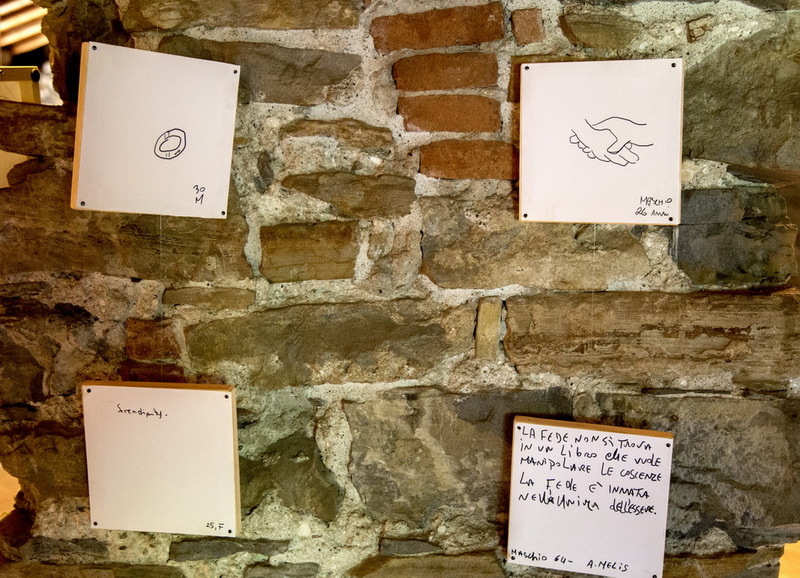 30
M
MASCHIO
26 ANNI
Serendipity.
25, F
LA FEDE NON SI TROVA
IN UN LIBRO CHE VUOLE
MANIPOLARE LE COSCIENZE
LA FEDE E' INNATA
NELL'ANIMA DELL'ESSERE.
MASCHIO 64- A. MELIS